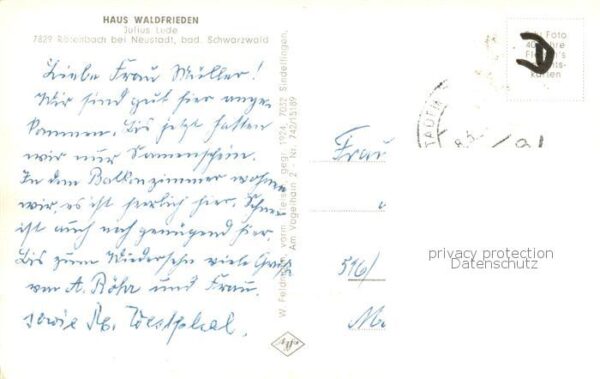 HAUS WALDFRIEDEN
Julius Lude
7829 Rötenbach bei Neustadt, bad. Schwarzwald
Liebe Frau Müller!
Wir sind gut hier ange-
kommen. Bis jetzt hatten
wir nur Sonnenschein.
In dem Balkonzimmer wohnen
wir, es ist herrlich hier. Schnee
ist auch noch genügend hier.
Bis zum Wiedersehn viele Grüße
von A. Röhr und Frau.
sowie Westphal.
W. Feldh vorm. Fleis gegr. 1924, 7032 Sindelfingen,
Am Vogelhain 2 Nr. 742/15189
Foto
40 Jahre
karten
Frau
516/
privacy protection
Datenschutz